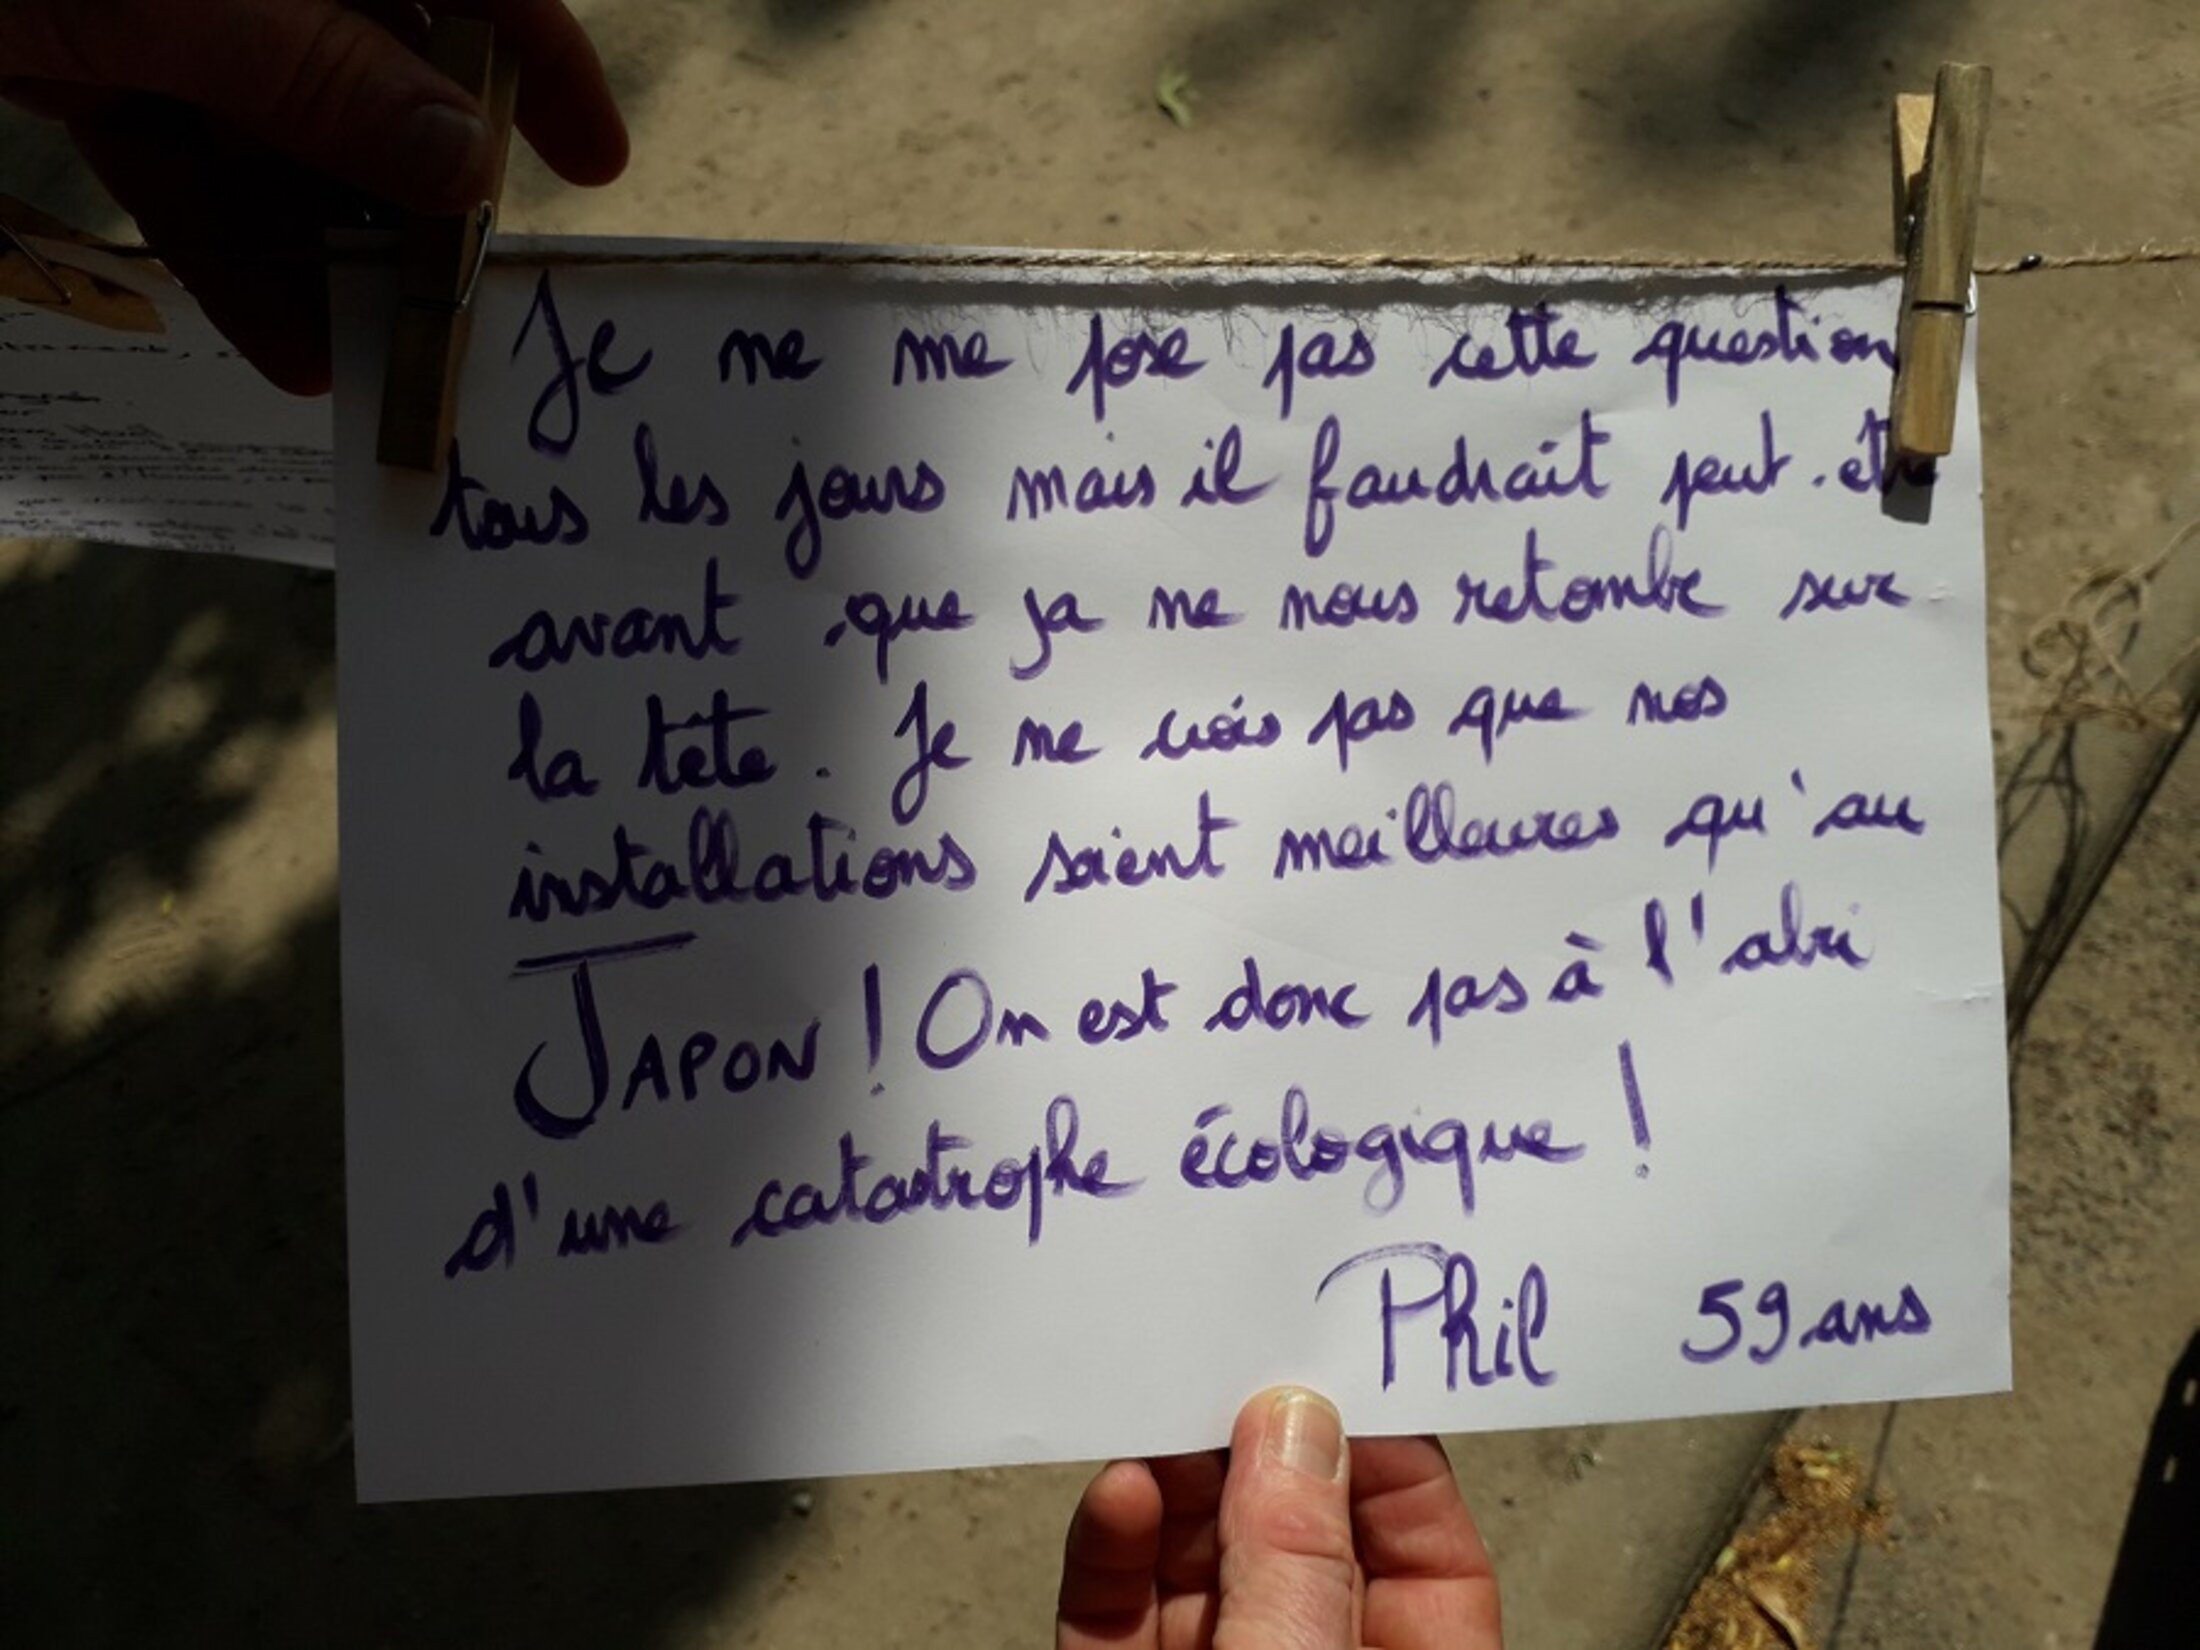 Je ne me pose pas cette question
tous les jours mais il faudrait peut-être
avant que ça ne nous retombe sur
la tête. Je ne crois pas que nos
installations soient meilleures qu'au
JAPON ! On est donc pas à l'abri
d'une catastrophe écologique !
Phil 59 ans